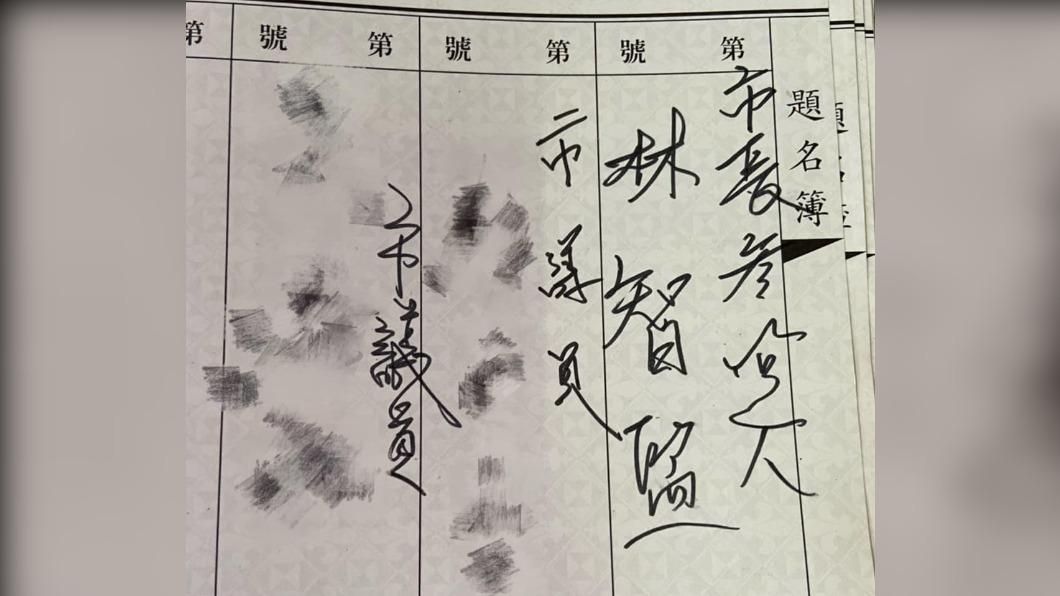 題名簿
第 號
市長參選人
林智堅
第 號
市議員
第 號
市議員
第